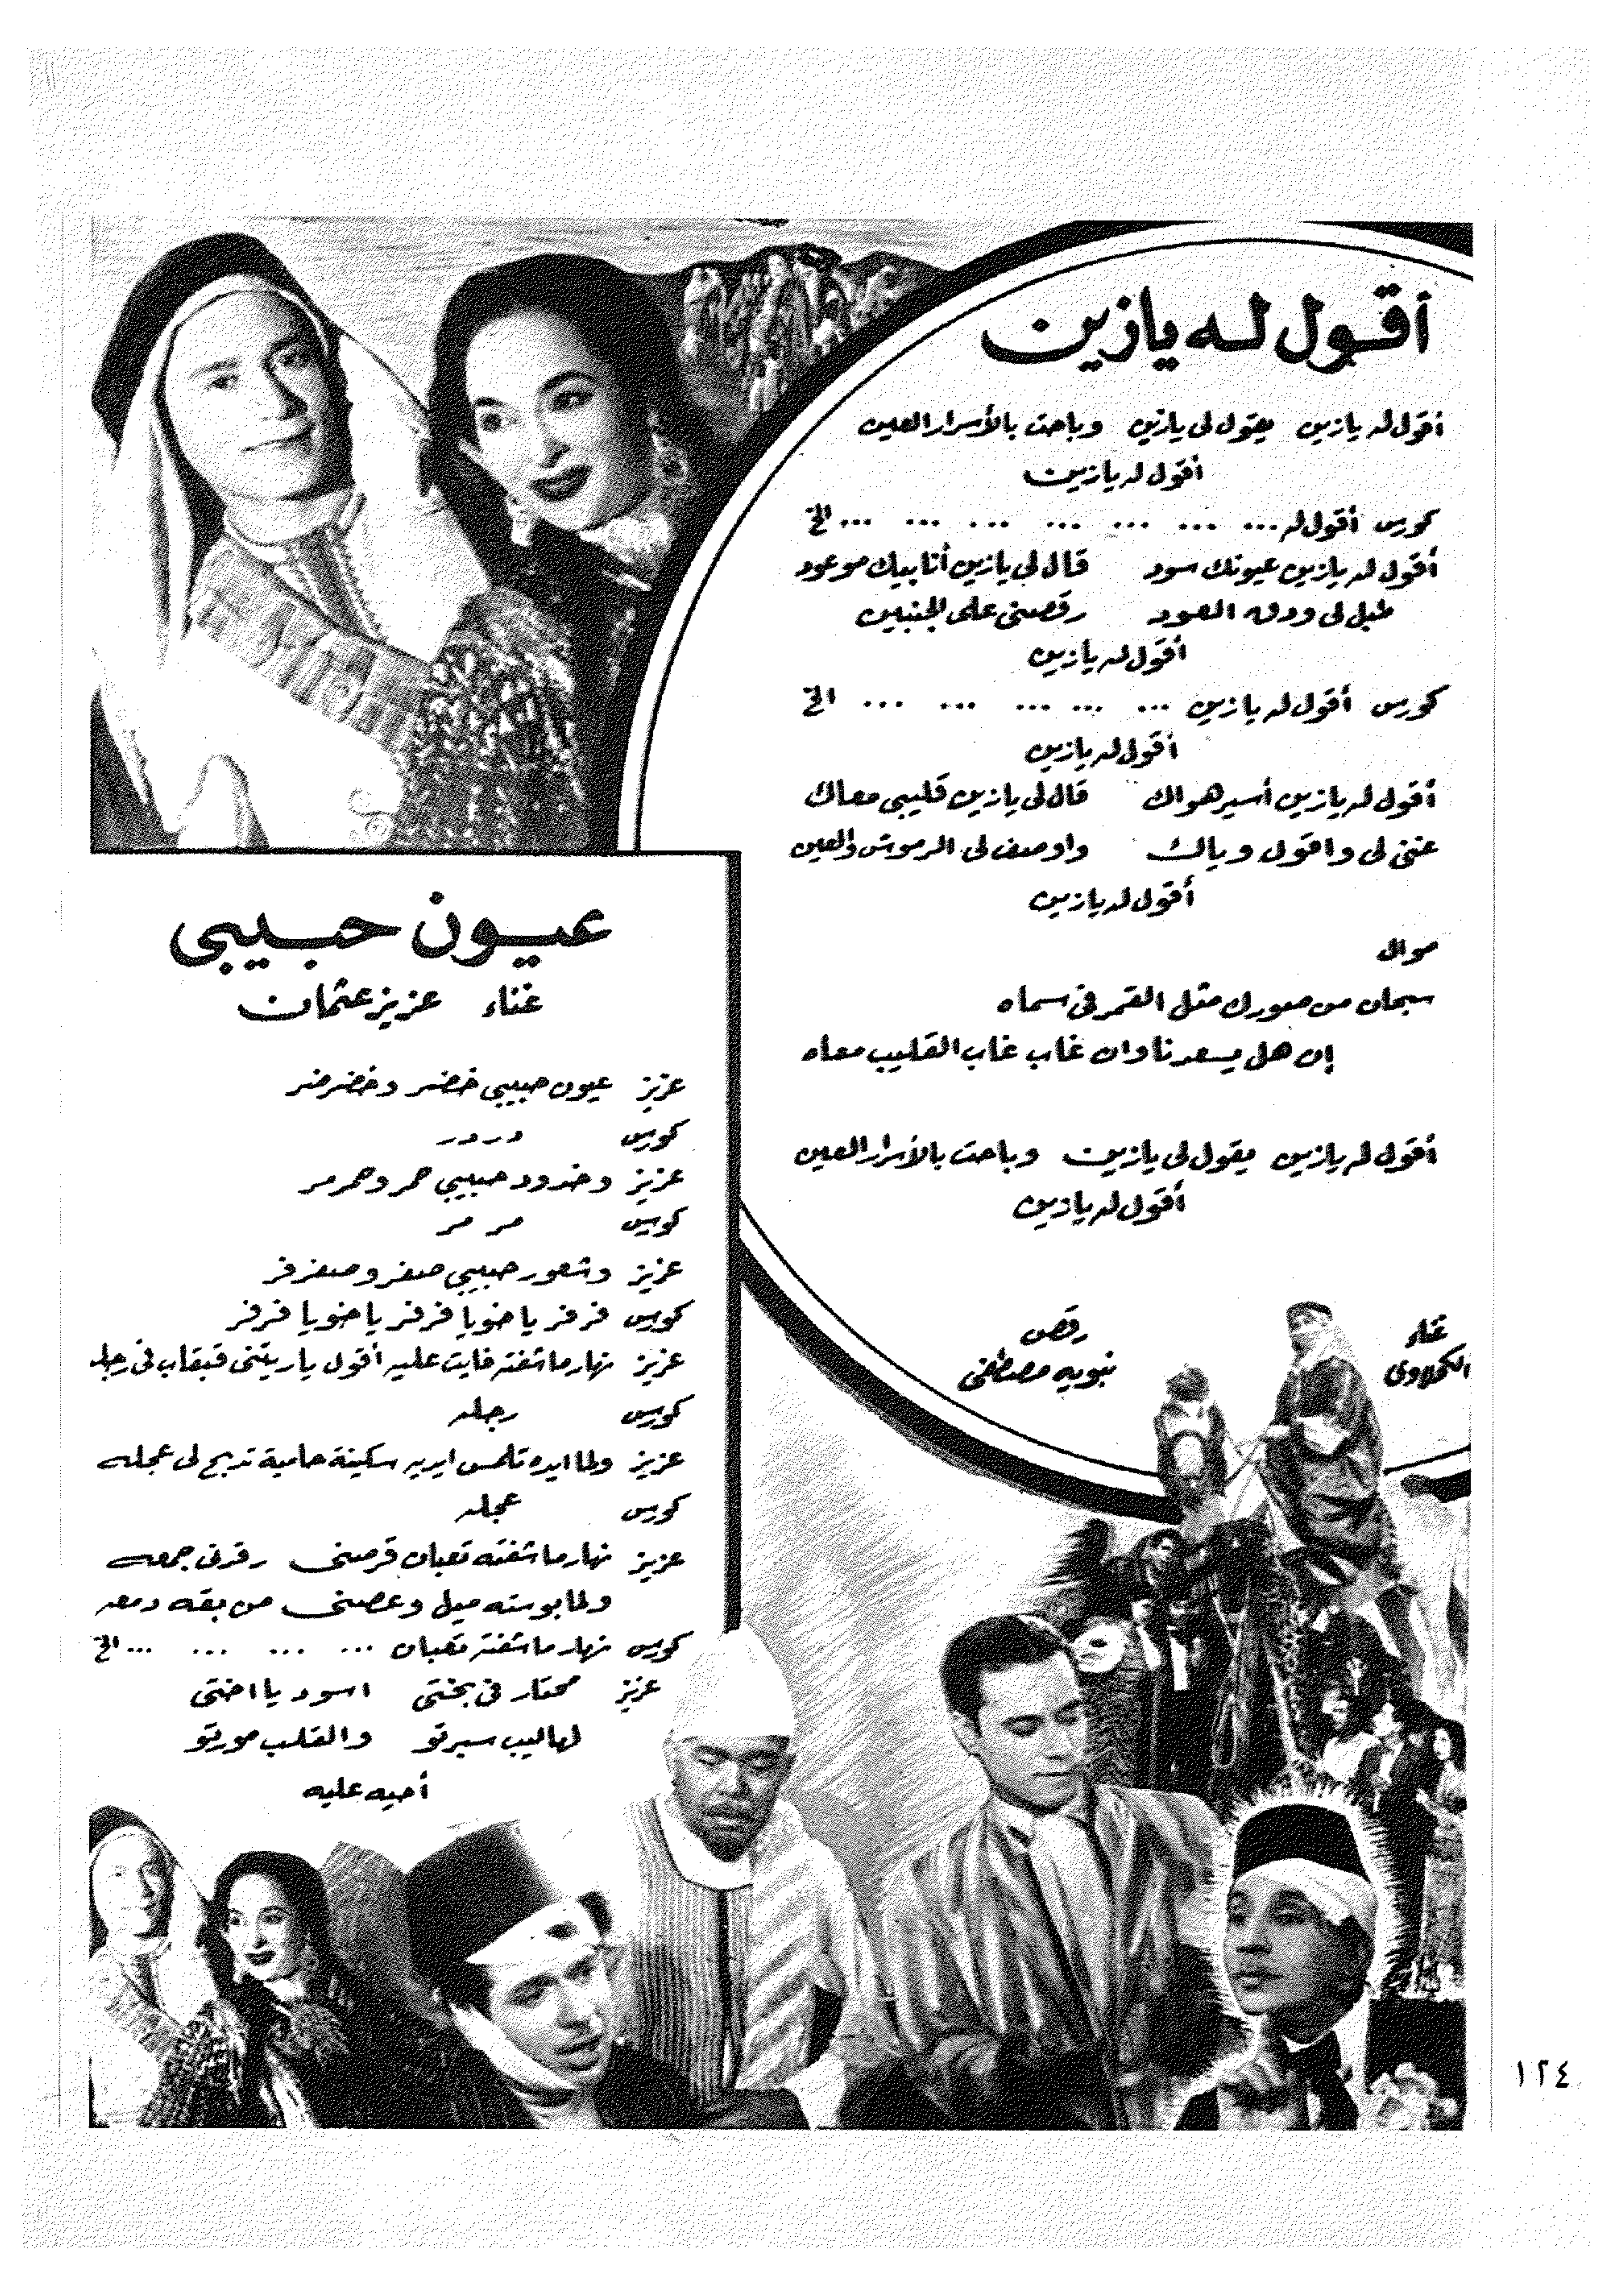 أقول له يازين
أقول له يازين يقول لى يازين وباحت بالأسرار العين
أقول له يازين
كورس أقول له ... ... ... ... ... ... ... الخ
أقول له يازين عيونك سود قال لى يازين أنا بيك موعود
طبل لى ودق العود رقصنى على الجنبين
أقول له يازين
كورس أقول له يازين ... ... ... ... ... الخ
أقول له يازين
أقول له يازين أسير هواك قال لى يازين قليبى معاك
غنى لى واقول وياك واوصف لى الرموش والعين
أقول له يازين
موال
سبحان من صورك مثل القمر فى سماه
إن هل يسعدنا وان غاب غاب القليب معاه
أقول له يازين يقول لى يازين وباحت بالأسرار العين
أقول له يازين
غناء
الكحلاوى
رقص
نبويه مصطفى
عيون حبيبى
غناء عزيز عثمان
عزيز عيون حبيبى خضر وخضرضر
كورس درودر
عزيز وخدود حبيبى حمر وحمرمر
كورس مر مر
عزيز وشعور حبيبى صفر وصفرفر
كورس فرفر ياخويا فرفر ياخويا فرفر
عزيز نهار ماشفته فايت عليه أقول ياريتنى قبقاب فى رجله
كورس رجله
عزيز ولما ايده تلمس ايديه سكينة حامية تدبح لى عجله
كورس عجله
عزيز نهار ماشفته تعبان قرصنى رقدنى جمعه
ولما بوسته ميل وعصنى من بقه دمعه
كورس نهار ماشفته تعبان ... ... ... ... الخ
عزيز محتار فى بختى اسود يا اختى
لهاليب سبرتو والقلب مورتو
أحيه عليه
١٢٤